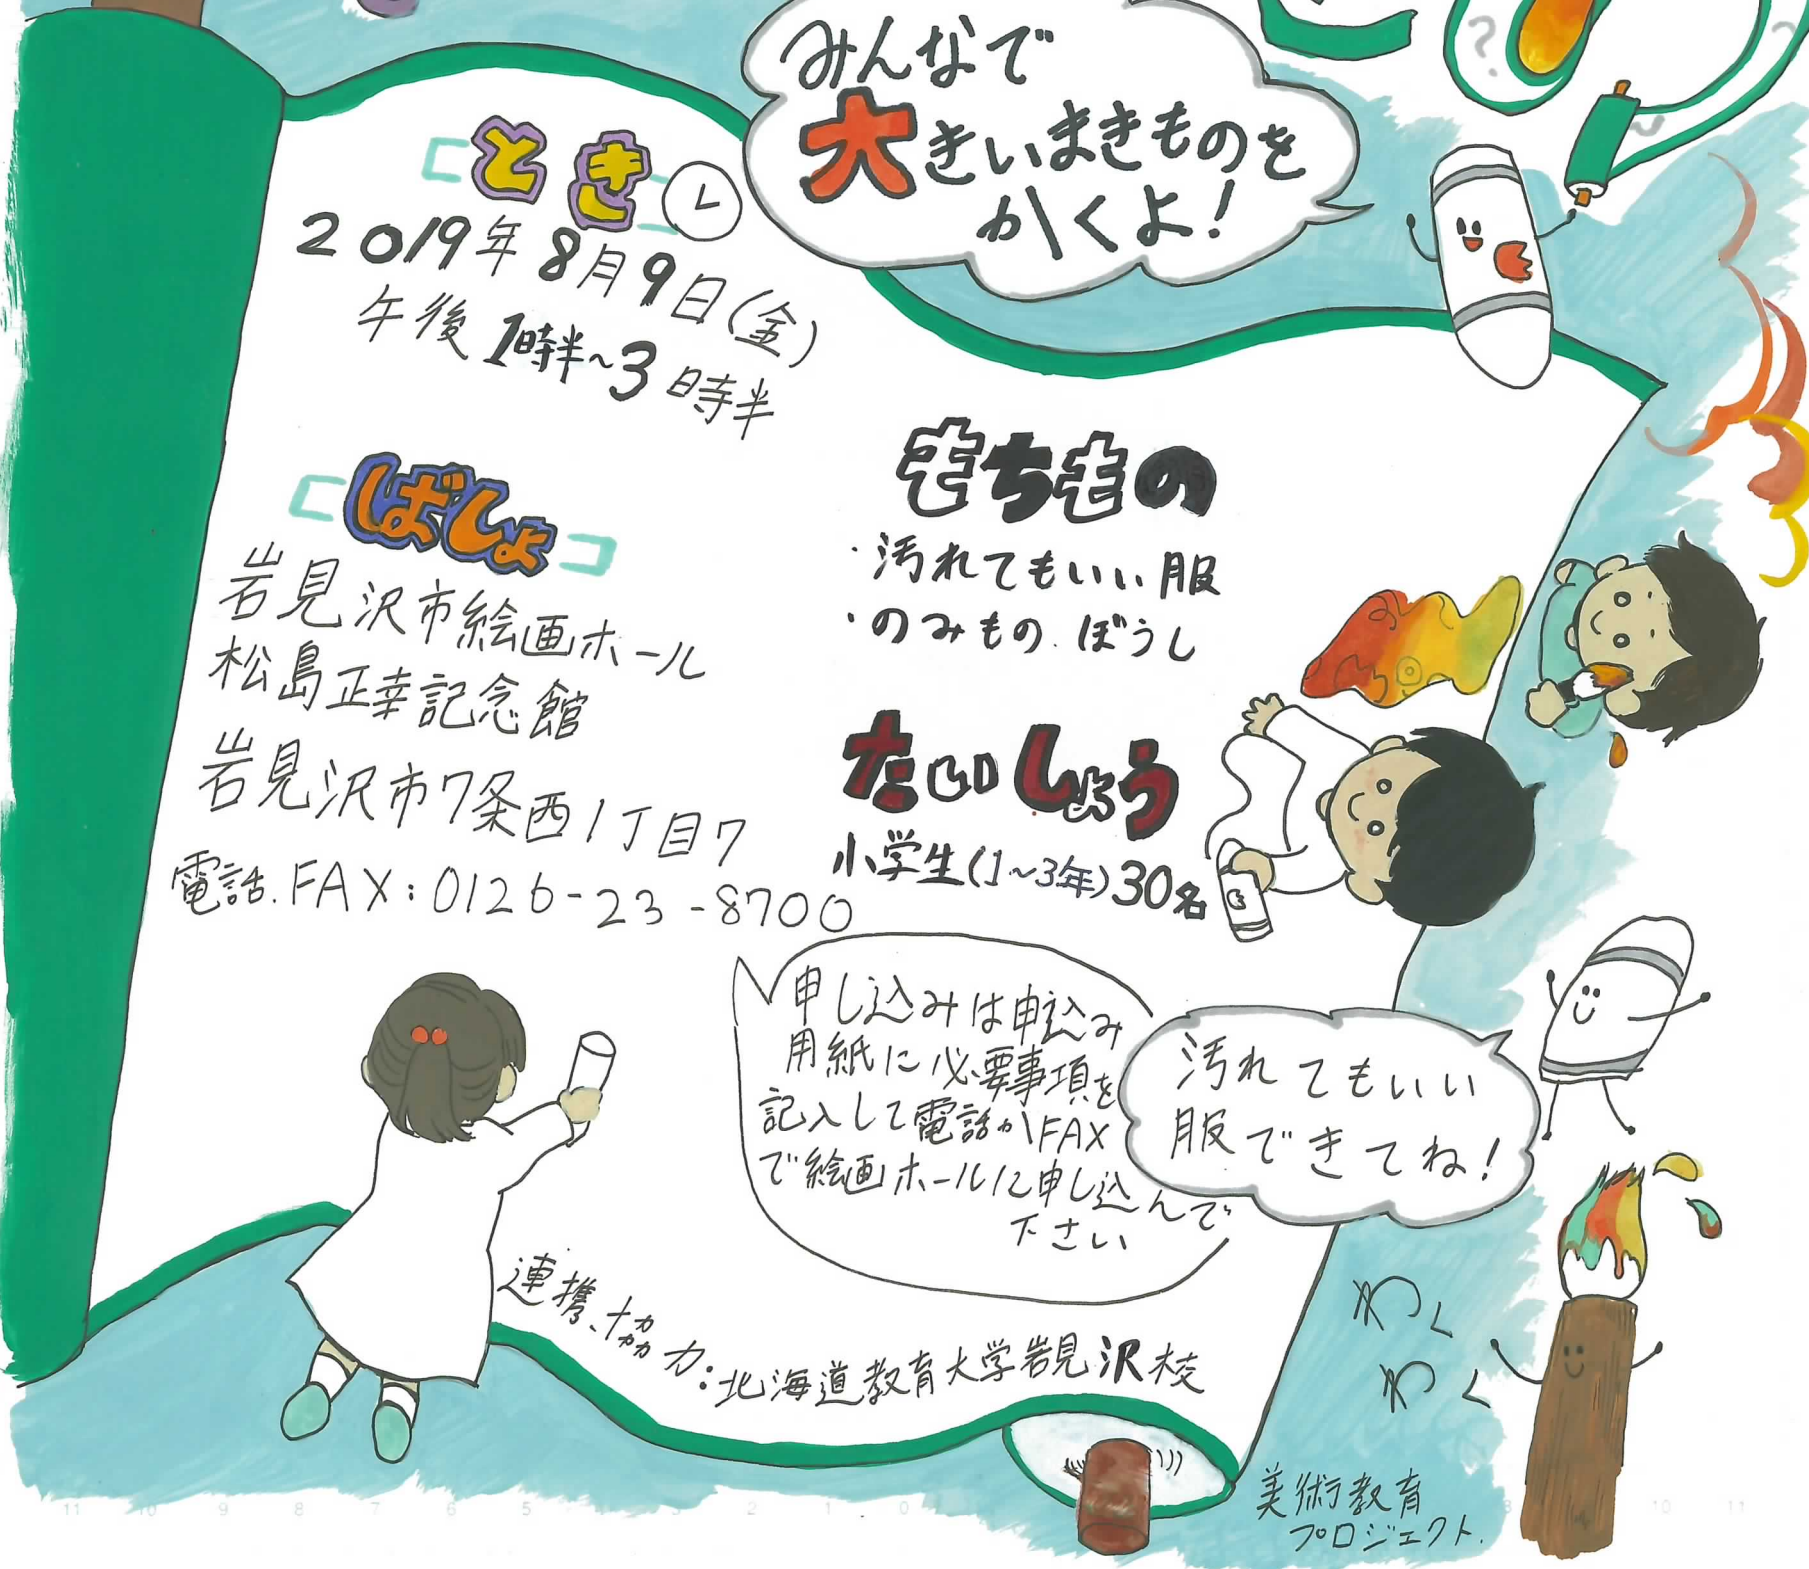 みんなで
大きいまきものを
かくよ!
とき
2019年8月9日(金)
午後1時半~3時半
ばしょ
岩見沢市絵画ホール
松島正幸記念館
岩見沢市7条西1丁目7
電話.FAX:0126-23-8700
もちもの
・汚れてもいい服
・のみもの.ぼうし
たいしょう
小学生(1~3年)30名
申し込みは申込み
用紙に必要事項を
記入して電話かFAX
で絵画ホールに申し込んで
下さい
汚れてもいい
服できてね!
連携、協力:北海道教育大学岩見沢校
わく
わく
美術教育
プロジェクト.